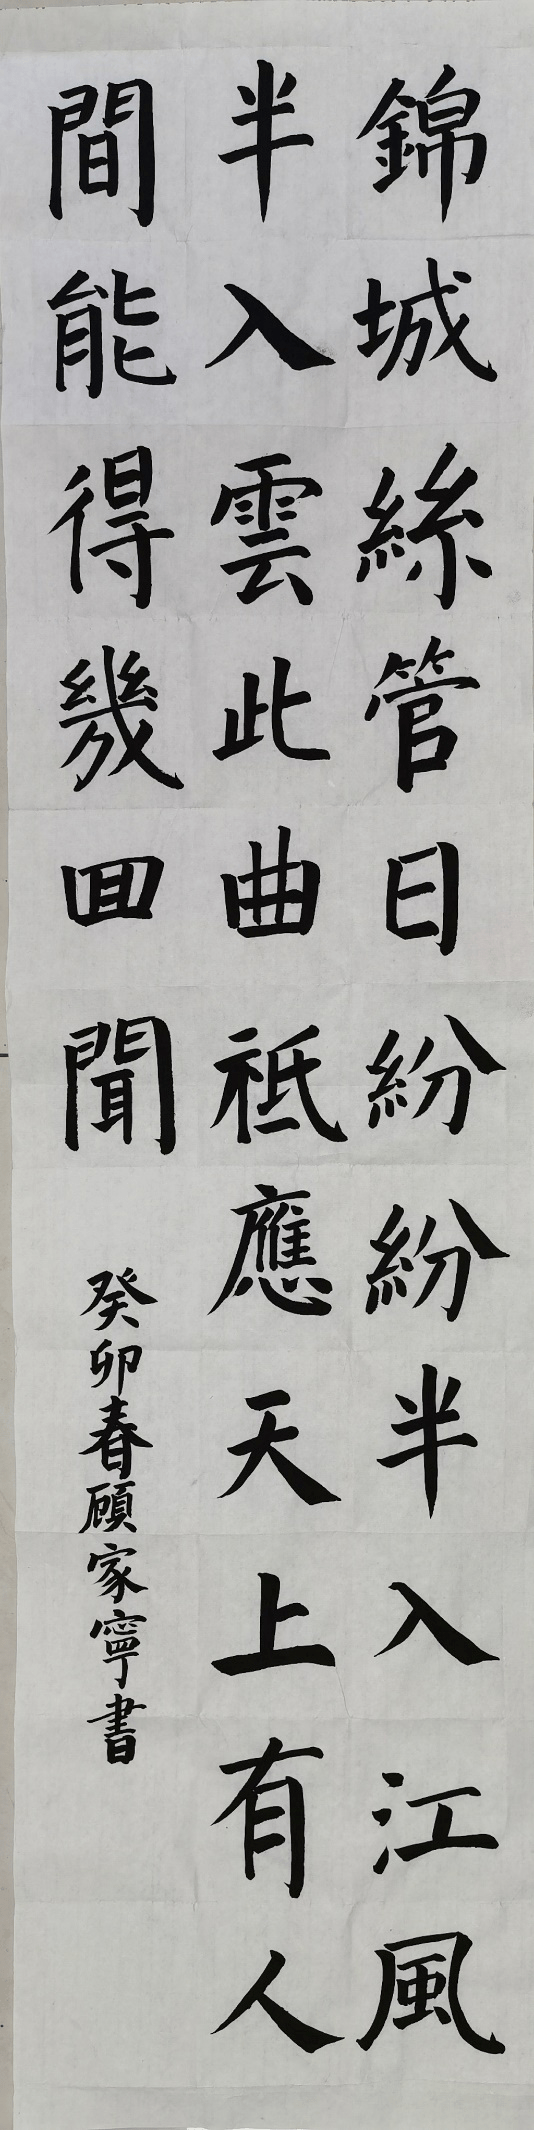 錦城絲管日紛紛半入江風
半入雲此曲祗應天上有人
間能得幾回聞
癸卯春顧家寧書